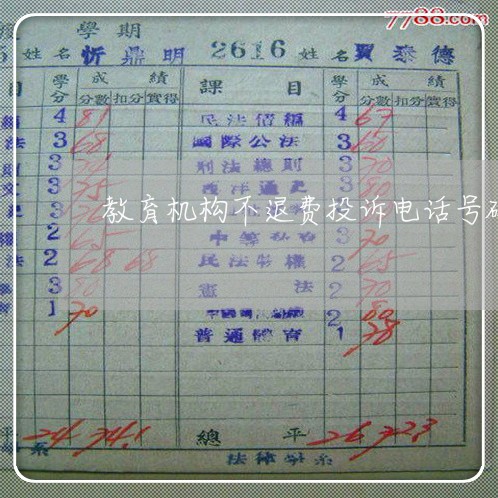 7788.com
學期
姓名 忻鼎明 2616 姓名 賈泰德
目 學分 成績 課目 學分 成績
分數 扣分 實得 分數 扣分 實得
4 81 民法債編 4 67
法 3 68 國際公法 3 60
3 刑法總則 3 70
3 75 西洋通史 3 80
教育机构不退费投诉电话号码
2 65 3 70
法 2 68 68 民法物權 2 65
3 80 憲法 2 70
1 70 2 80
普通體育 1 78
平 24 74.1 總平 26 72.3
系 法律學系